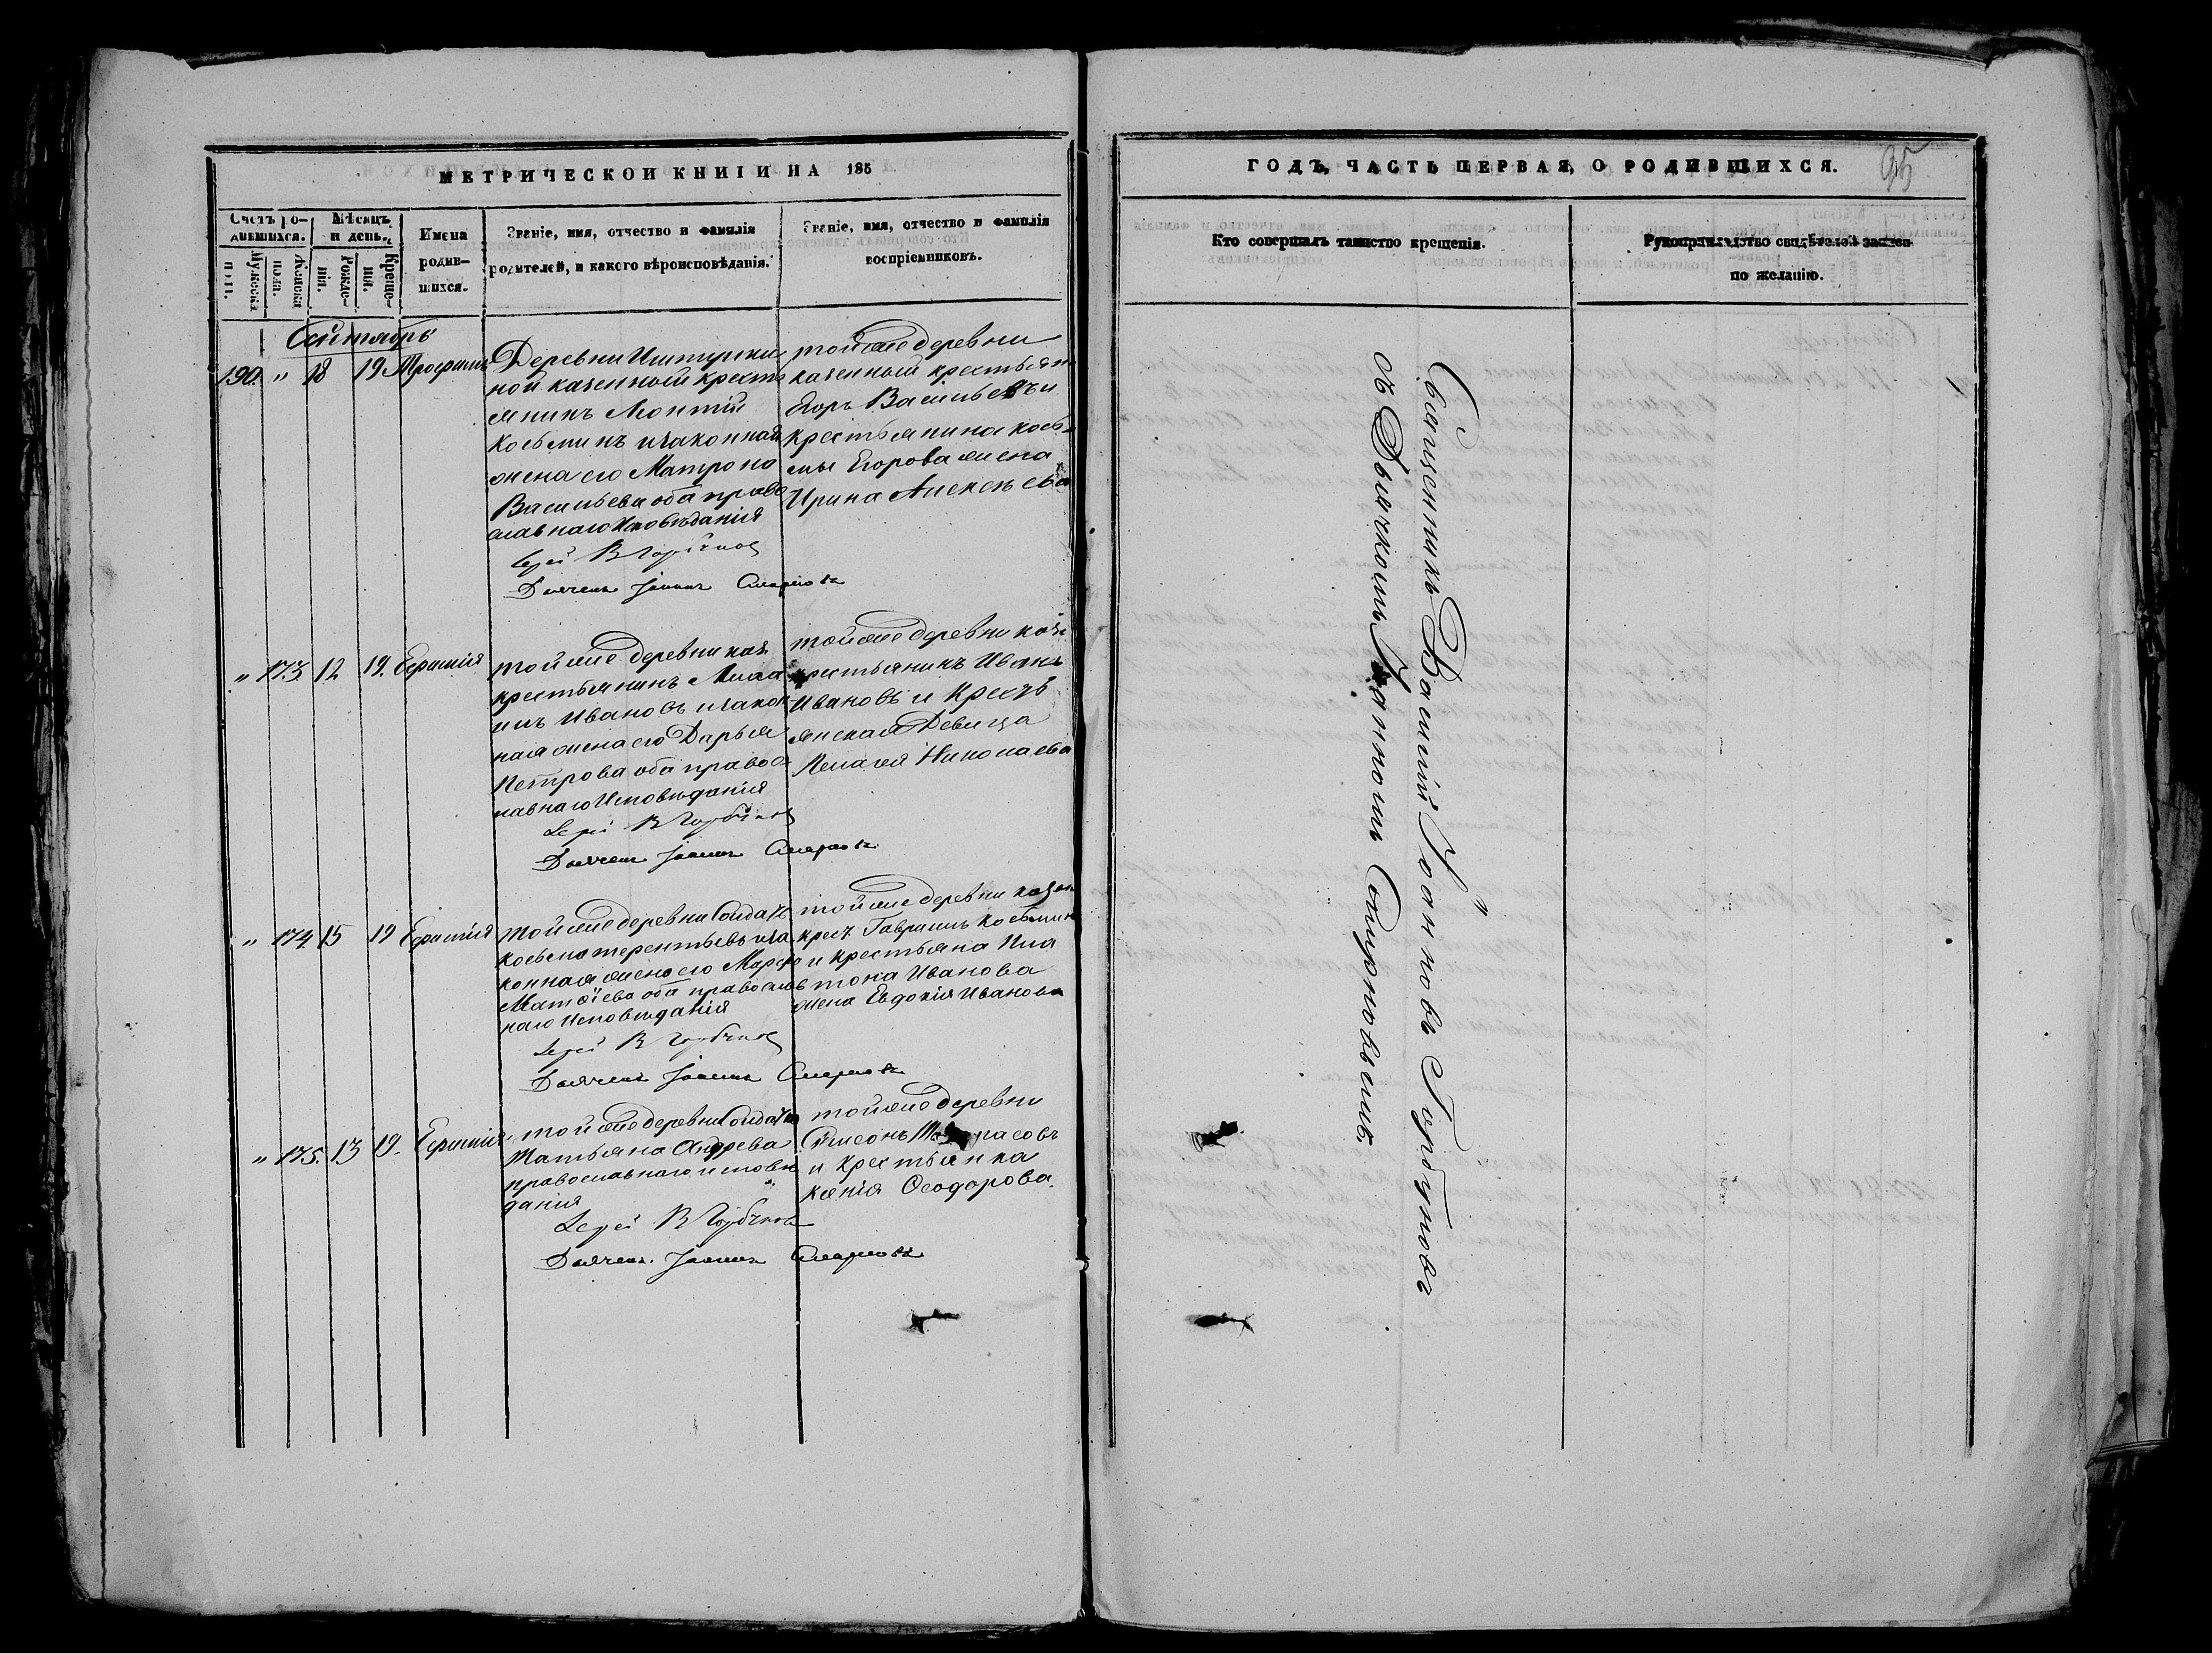 МЕТРИЧЕСКОЙ КНИГИ НА 185
Счетъ ро-
дившихся.
Мужеска
пола.
Женска
пола.
Мѣсяцъ
и день.
Рожде-
нія.
Креще-
нія.
Имена
родив-
шихся.
Званіе, имя, отчество и фамилія
родителей, и какого вѣроисповѣданія.
Званіе, имя, отчество и фамилія
воспріемниковъ.
Сентябрь
190. " 18 19 Трофимъ
Деревни
ной казенный кресть
янинъ Леонтій
Косьминъ и законная
жена его Матрона
Васильева оба право
славнаго Исповѣданія
Іерей В Горбуновъ
Дьячекъ Іоаннъ Смирновъ
той же деревни
казенный крестьян
Егоръ Васильевъ и
крестьянина Кось-
мы Егорова жена
Ирина Алексѣева
" 173 12 19. Евфимія
той же деревни каз
крестьянинъ
Ивановъ и закон
ная жена его Дарья
Петрова оба правос
лавнаго Исповѣданія
Іерей В Горбуновъ
Дьячекъ Іоаннъ Смирновъ
той же деревни каз
крестьянинъ Иванъ
Ивановъ и Кресть
янская Девица
Пелагея Николаева
" 174 15 19 Евфимія
той же деревни Солдатъ
Косьма Терентьевъ и за
конная жена его Марфа
Матөіева оба православ
наго Исповѣданія
Іерей В Горбуновъ
Дьячекъ Іоаннъ Смирновъ
той же деревни казен
крест Гавріилъ Косьмин
и крестьяна Пла
тона Иванова
жена Евдокія Иванова
" 175. 13 19. Евфимія
той же деревни Солдатка
Татьяна Андрева
православнаго исповѣ
данія
Іерей В Горбуновъ
Дьячекъ Іоаннъ Смирновъ
той же деревни
Симеонъ
и крестьянка
Ксенія Ѳеодорова.
ГОДЪ, ЧАСТЬ ПЕРВАЯ, О РОДИВШИХСЯ.
95
Кто совершалъ таинство крещенія.
Рукоприкладство свидѣтелей записи
по желанію.
Священникъ Василій Іоанновъ Горбуновъ
съ Дьячкомъ Іоанномъ Смирновымъ.